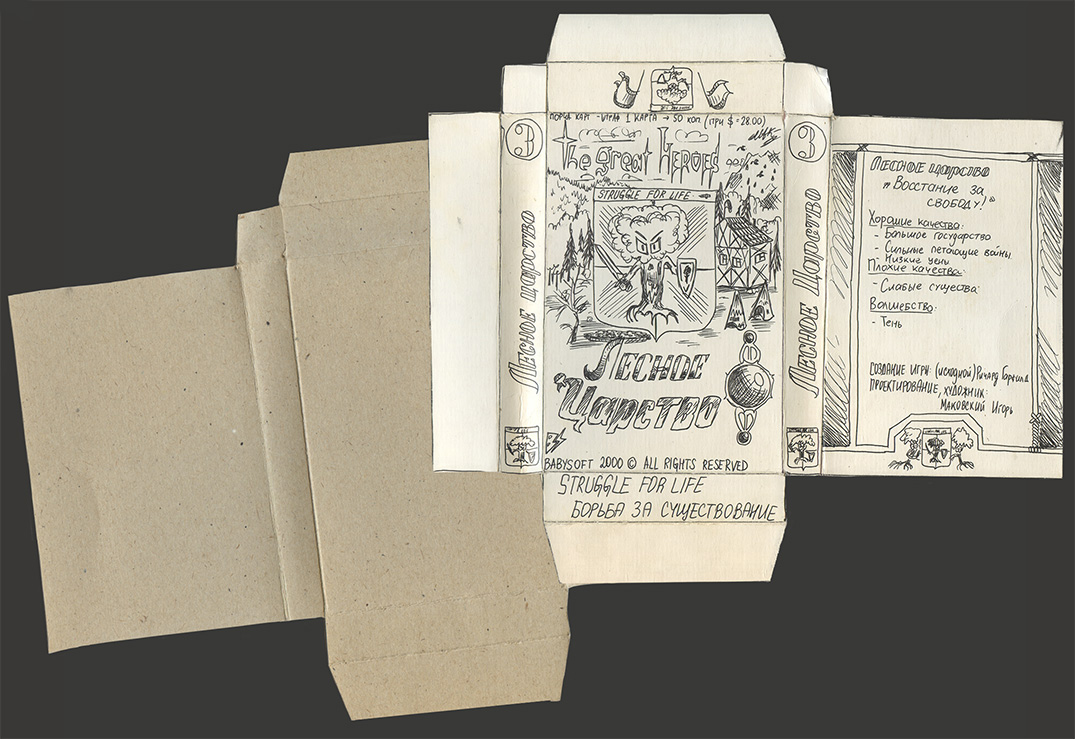 3
Лесное царство
КАРТ - 1 КАРТА → 50 КОП. (ПРИ $ = 28.00)
The great HEROES
STRUGGLE FOR LIFE
Лесное
Царство
BABYSOFT 2000 © ALL RIGHTS RESERVED
STRUGGLE FOR LIFE
БОРЬБА ЗА СУЩЕСТВОВАНИЕ
3
Лесное Царство
Лесное царство
"Восстание за
свободу!"
Хорошие качества:
- Большое государство
- Сильные летающие войны
- Низкие цены
Плохие качества:
- Слабые существа
Волшебство:
- Тень
СОЗДАНИЕ ИГРЫ: (исходной) Ричард Гарфилд
ПРОЕКТИРОВАНИЕ, ХУДОЖНИК:
МАКОВСКИЙ Игорь